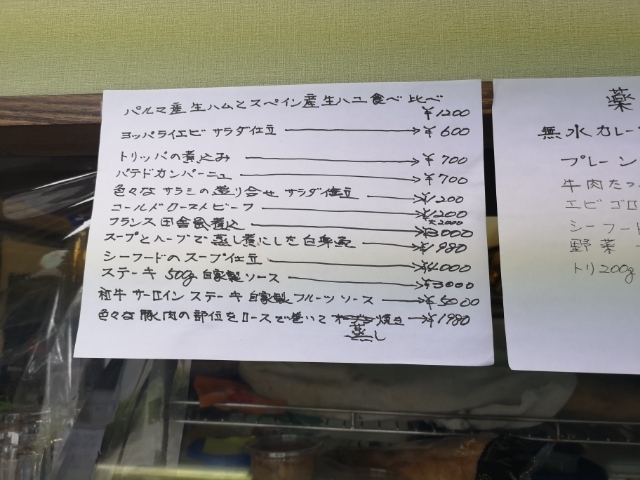 パルマ産生ハムとスペイン産生ハム食べ比べ
¥1200
ヨッパライエビ サラダ仕立 → ¥600
トリッパの煮込み → ¥700
パテドカンパーニュ → ¥700
色々なサラミの盛り合せ サラダ仕立 → ¥1200
コールドローストビーフ → ¥1200
フランス田舎食煮込 →
スープとハーブで蒸し煮にした白身魚 → ¥1980
シーフードのスープ仕立 → ¥4000
ステーキ 500g 自家製ソース → ¥3000
和牛サーロインステーキ自家製フルーツソース → ¥5000
色々な豚肉の部位をロースで巻いて 焼き → ¥1980
蒸し
薬
無水カレー
プレーン
牛肉たっ
エビゴロ
シーフード
野菜
トリ200g